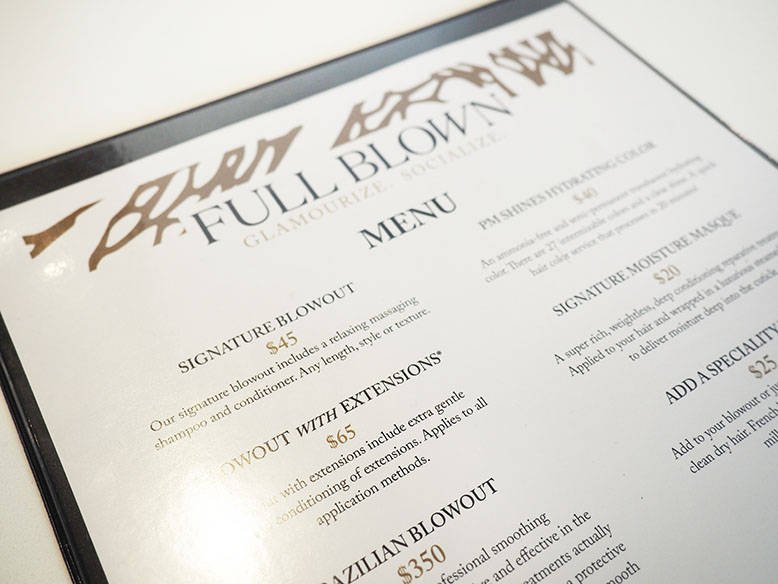 FULL BLOWN
GLAMOURIZE. SOCIALIZE.
MENU
SIGNATURE BLOWOUT
$45
Our signature blowout includes a relaxing massaging
shampoo and conditioner. Any length, style or texture.
WITH EXTENSIONS*
$65
with extensions include extra gentle
conditioning of extensions. Applies to all
application methods.
BLOWOUT
$350
professional smoothing
and effective in the
actually
protective
smooth
PM SHINES HYDRATING COLOR
$40
An ammonia-free and semi-permanent translucent hydrating
color. There are 27 intermixable colors and a clear shine. A quick
hair color service that processes in 20 minutes!
SIGNATURE MOISTURE MASQUE
$20
A super rich, weightless, deep conditioning reparative
Applied to your hair and wrapped in a luxurious
to deliver moisture deep into the
ADD A SPECIALITY
$25
Add to your blowout or
clean dry hair. French